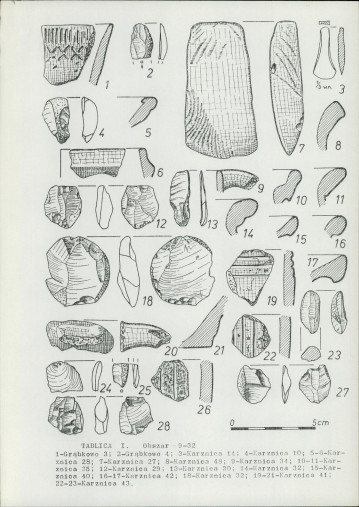 1
2
⅓ wn.
3
4
5
6
7
8
9
10
11
12
13
14
15
16
17
18
19
20
21
22
23
24
25
26
27
28
0 5cm
TABLICA I. Obszar 9-32
1-Grąbkowo 3; 2-Grąbkowo 4; 3-Karznica 14; 4-Karznica 10; 5-6-Kar-
znica 28; 7-Karznica 27; 8-Karznica 48; 9-Karznica 34; 10-11-Kar-
znica 35; 12-Karznica 29; 13-Karznica 30; 14-Karznica 32; 15-Kar-
znica 40; 16-17-Karznica 42; 18-Karznica 32; 19-21-Karznica 41;
22-23-Karznica 43.